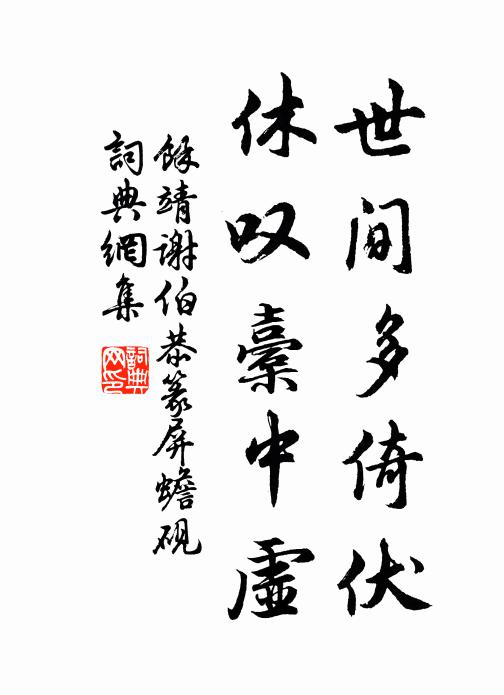 世间多倚伏
休叹橐中虚
餘靖谢伯恭篆屏蟾砚
詞典網集
詞典网印